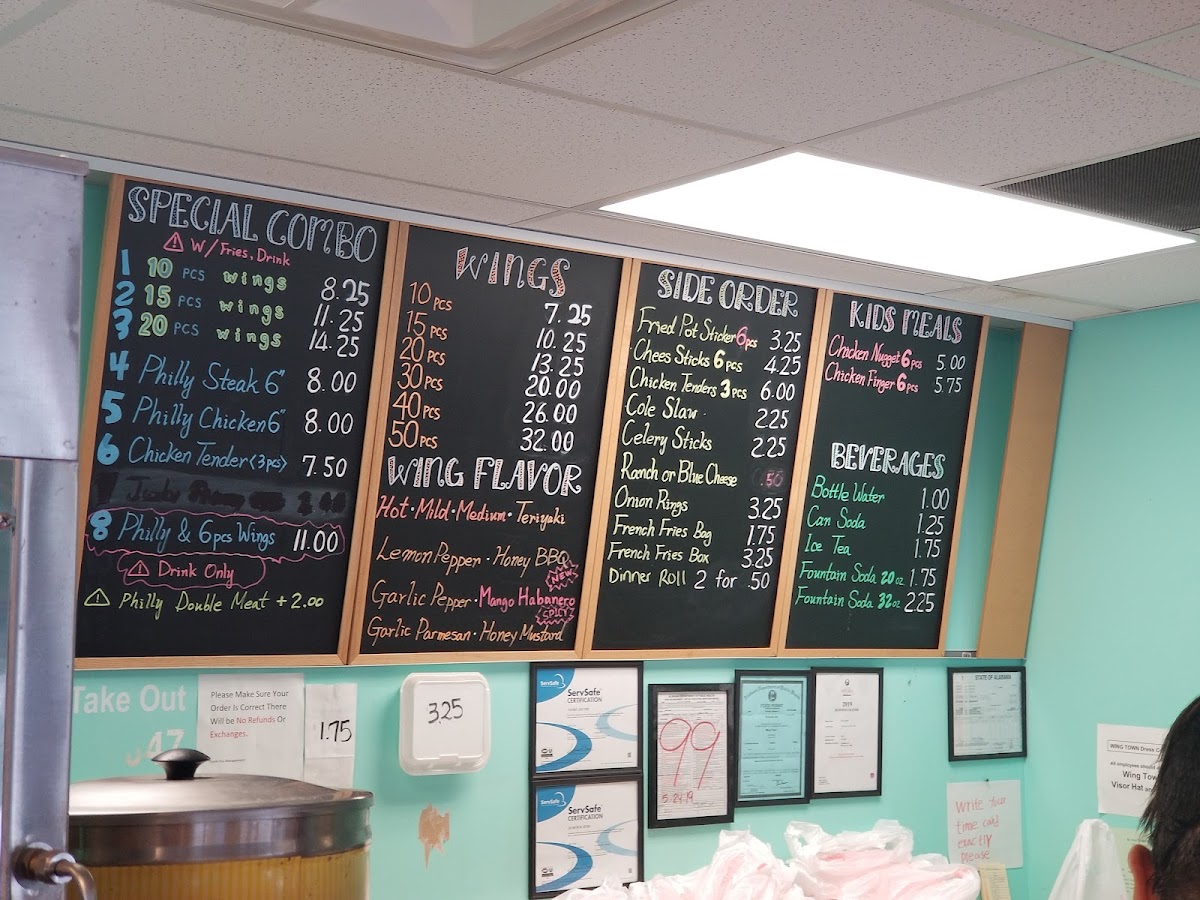 SPECIAL COMBO
⚠ W/Fries, Drink
1 10 PCS wings 8.25
2 15 PCS wings 11.25
3 20 PCS wings 14.25
4 Philly Steak 6" 8.00
5 Philly Chicken 6" 8.00
6 Chicken Tender <3pcs> 7.50
8 Philly & 6pcs Wings 11.00
⚠ Drink Only
⚠ Philly Double Meat + 2.00
WINGS
10 PCS 7.25
15 PCS 10.25
20 PCS 13.25
30 PCS 20.00
40 PCS 26.00
50 PCS 32.00
WING FLAVOR
Hot · Mild · Medium · Teriyaki
Lemon Pepper · Honey BBQ
NEW
Garlic Pepper · Mango Habanero
SPICY
Garlic Parmesan · Honey Mustard
SIDE ORDER
Fried Pot Sticker 6pcs 3.25
Chees Sticks 6 pcs 4.25
Chicken Tenders 3 pcs 6.00
Cole Slaw 2.25
Celery Sticks 2.25
Ranch or Blue Cheese .50
Onion Rings 3.25
French Fries Bag 1.75
French Fries Box 3.25
Dinner Roll 2 for .50
KIDS MEALS
Chicken Nugget 6 pcs 5.00
Chicken Finger 6 pcs 5.75
BEVERAGES
Bottle Water 1.00
Can Soda 1.25
Ice Tea 1.75
Fountain Soda 20 oz 1.75
Fountain Soda 32 oz 2.25
Take Out
47
Please Make Sure Your
Order Is Correct There
Will be No Refunds Or
Exchanges.
1.75
3.25
ServSafe
CERTIFICATION
ServSafe
CERTIFICATION
99
5-29-19
2019
STATE OF ALABAMA
WING TOWN Dress
Wing
Visor Hat
Write Your
time card
exactly
please